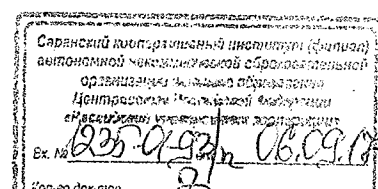 Саранский кооперативный институт (филиал)
автономной некоммерческой образовательной
организации высшего образования
Центросоюза Российской Федерации
«Российский университет кооперации»
Вх. № 235-01-93/п 06.09.17
Кол-во док-тов